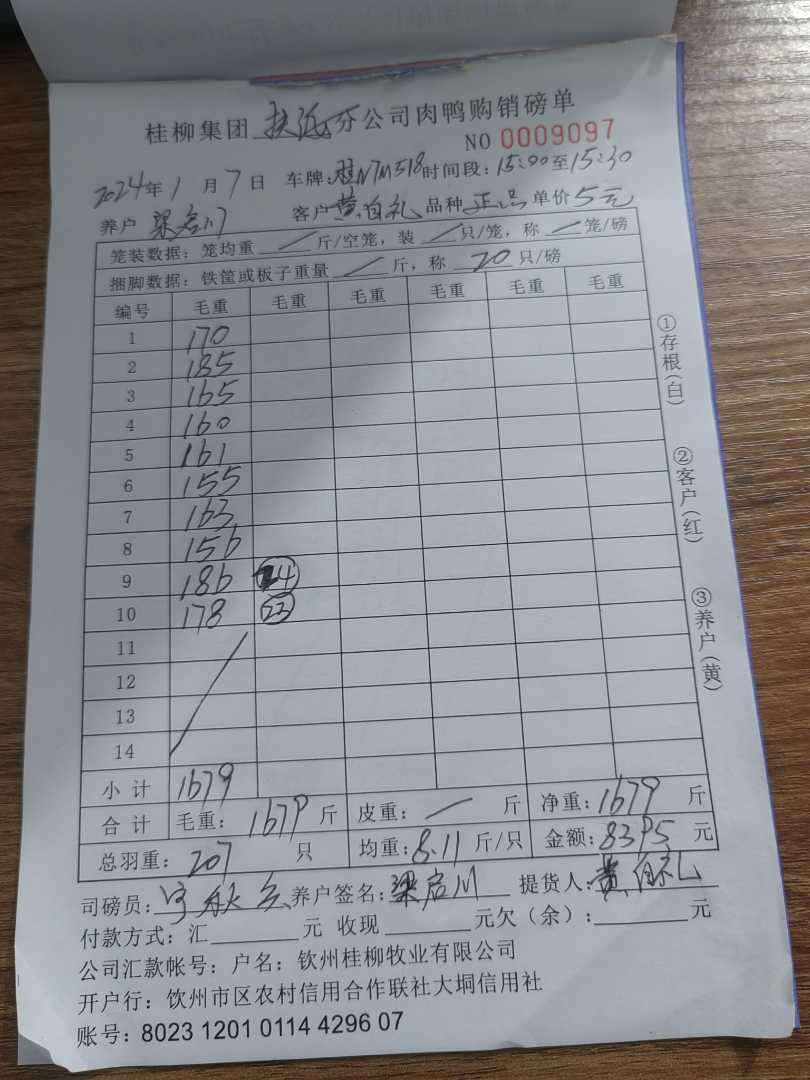 桂柳集团 扶流分公司肉鸭购销磅单
NO 0009097
2024年1月7日 车牌:桂N7M518时间段:15:00至15:30
养户 梁启川 客户 黄自礼 品种 正品 单价 5元
笼装数据: 笼均重 / 斤/空笼, 装 / 只/笼, 称 / 笼/磅
捆脚数据: 铁筐或板子重量 / 斤, 称 20 只/磅
编号 毛重 毛重 毛重 毛重 毛重 毛重
1 170
2 185
3 165
4 160
5 161
6 155
7 163
8 156
9 186 24
10 178 23
11
12
13
14
小计 1679
合计 毛重: 1679 斤 皮重: / 斤 净重: 1679 斤
总羽重: 207 只 均重: 8.11 斤/只 金额: 8395 元
司磅员: 养户签名: 梁启川 提货人: 黄自礼
付款方式: 汇 元 收现 元欠(余): 元
公司汇款帐号: 户名: 钦州桂柳牧业有限公司
开户行: 钦州市区农村信用合作联社大垌信用社
账号: 8023 1201 0114 4296 07
①存根(白)
②客户(红)
③养户(黄)